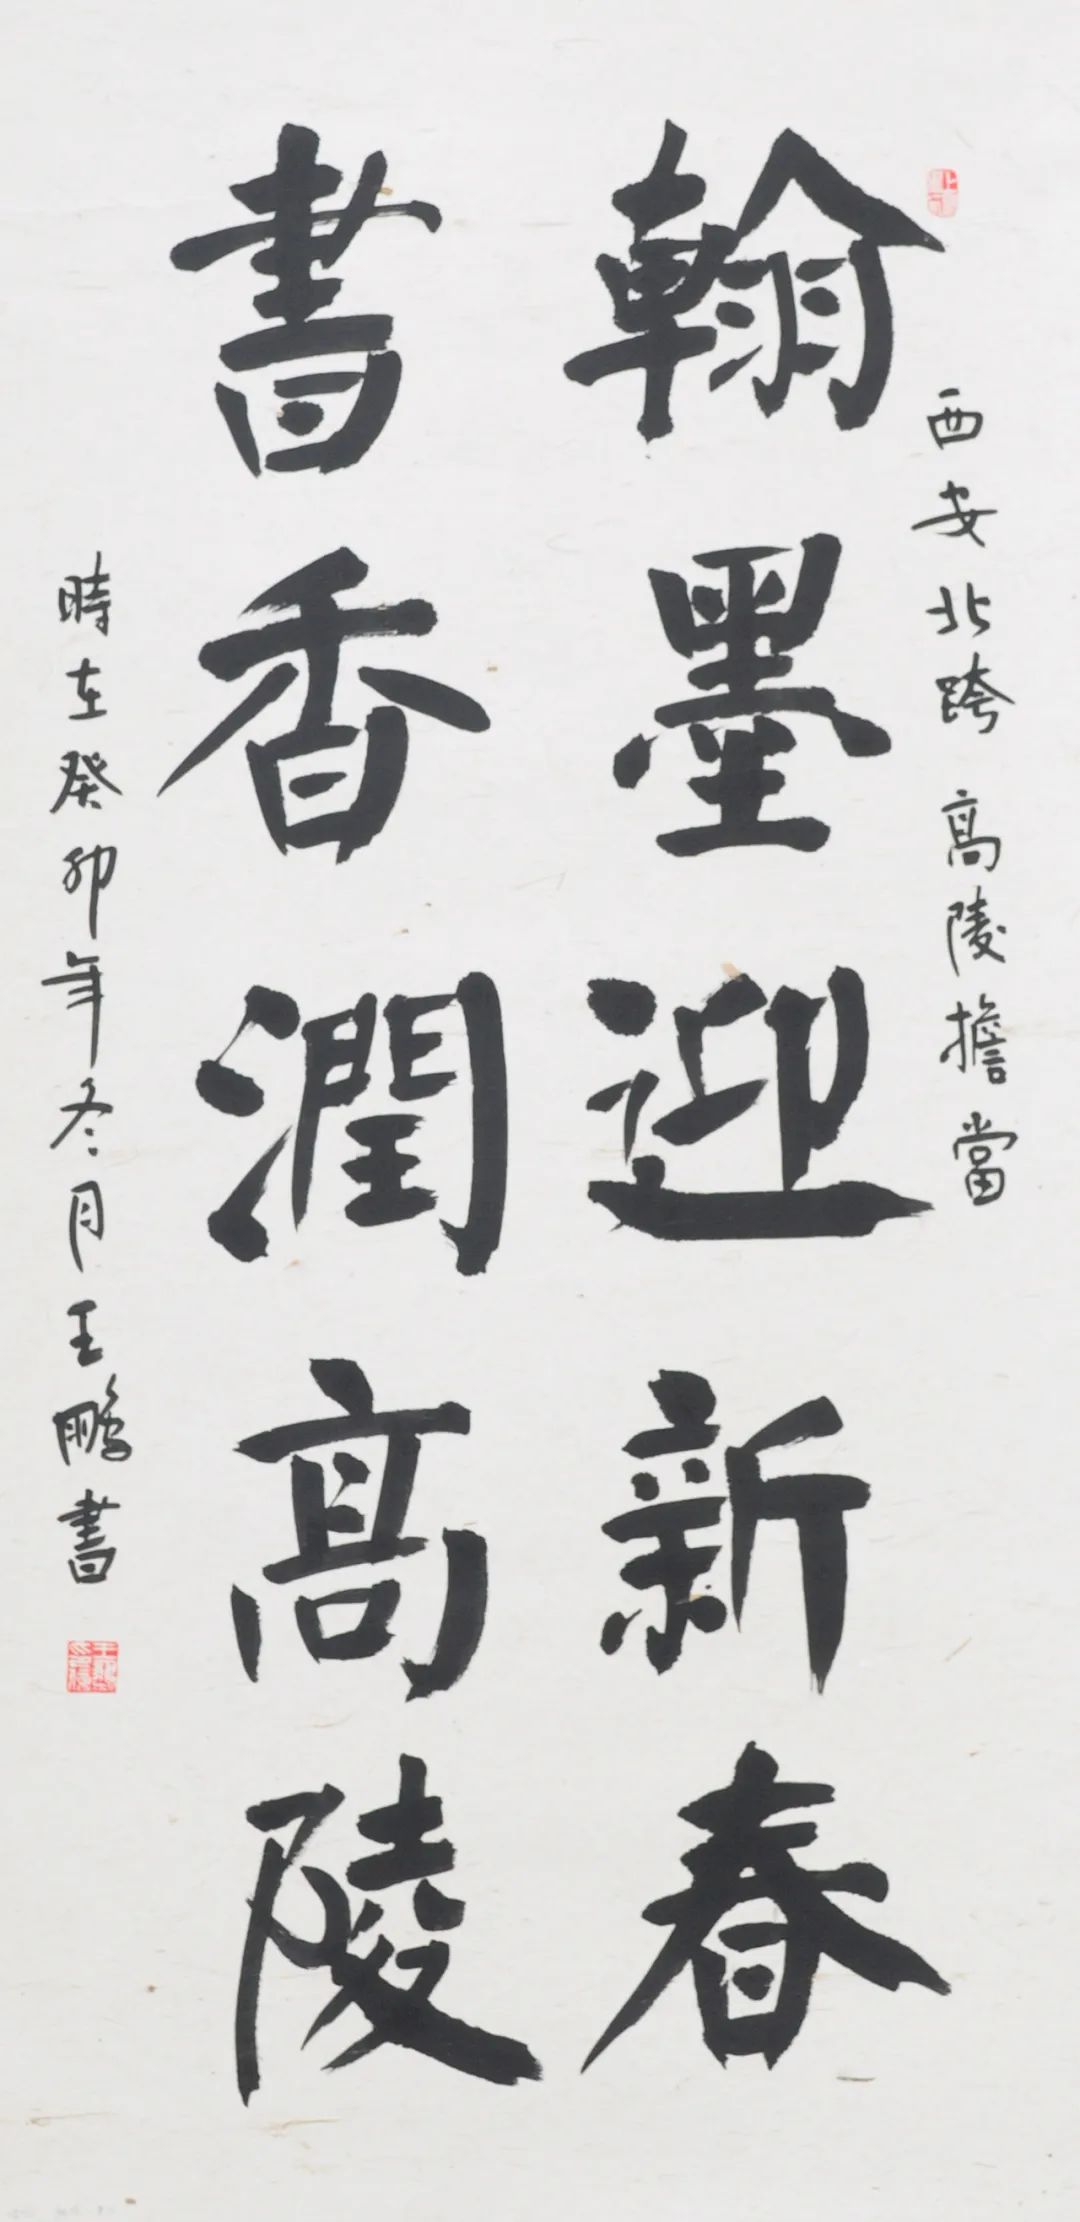 西安北跨高陵擔當
翰墨迎新春
書香潤高陵
時在癸卯年冬月王鵬書